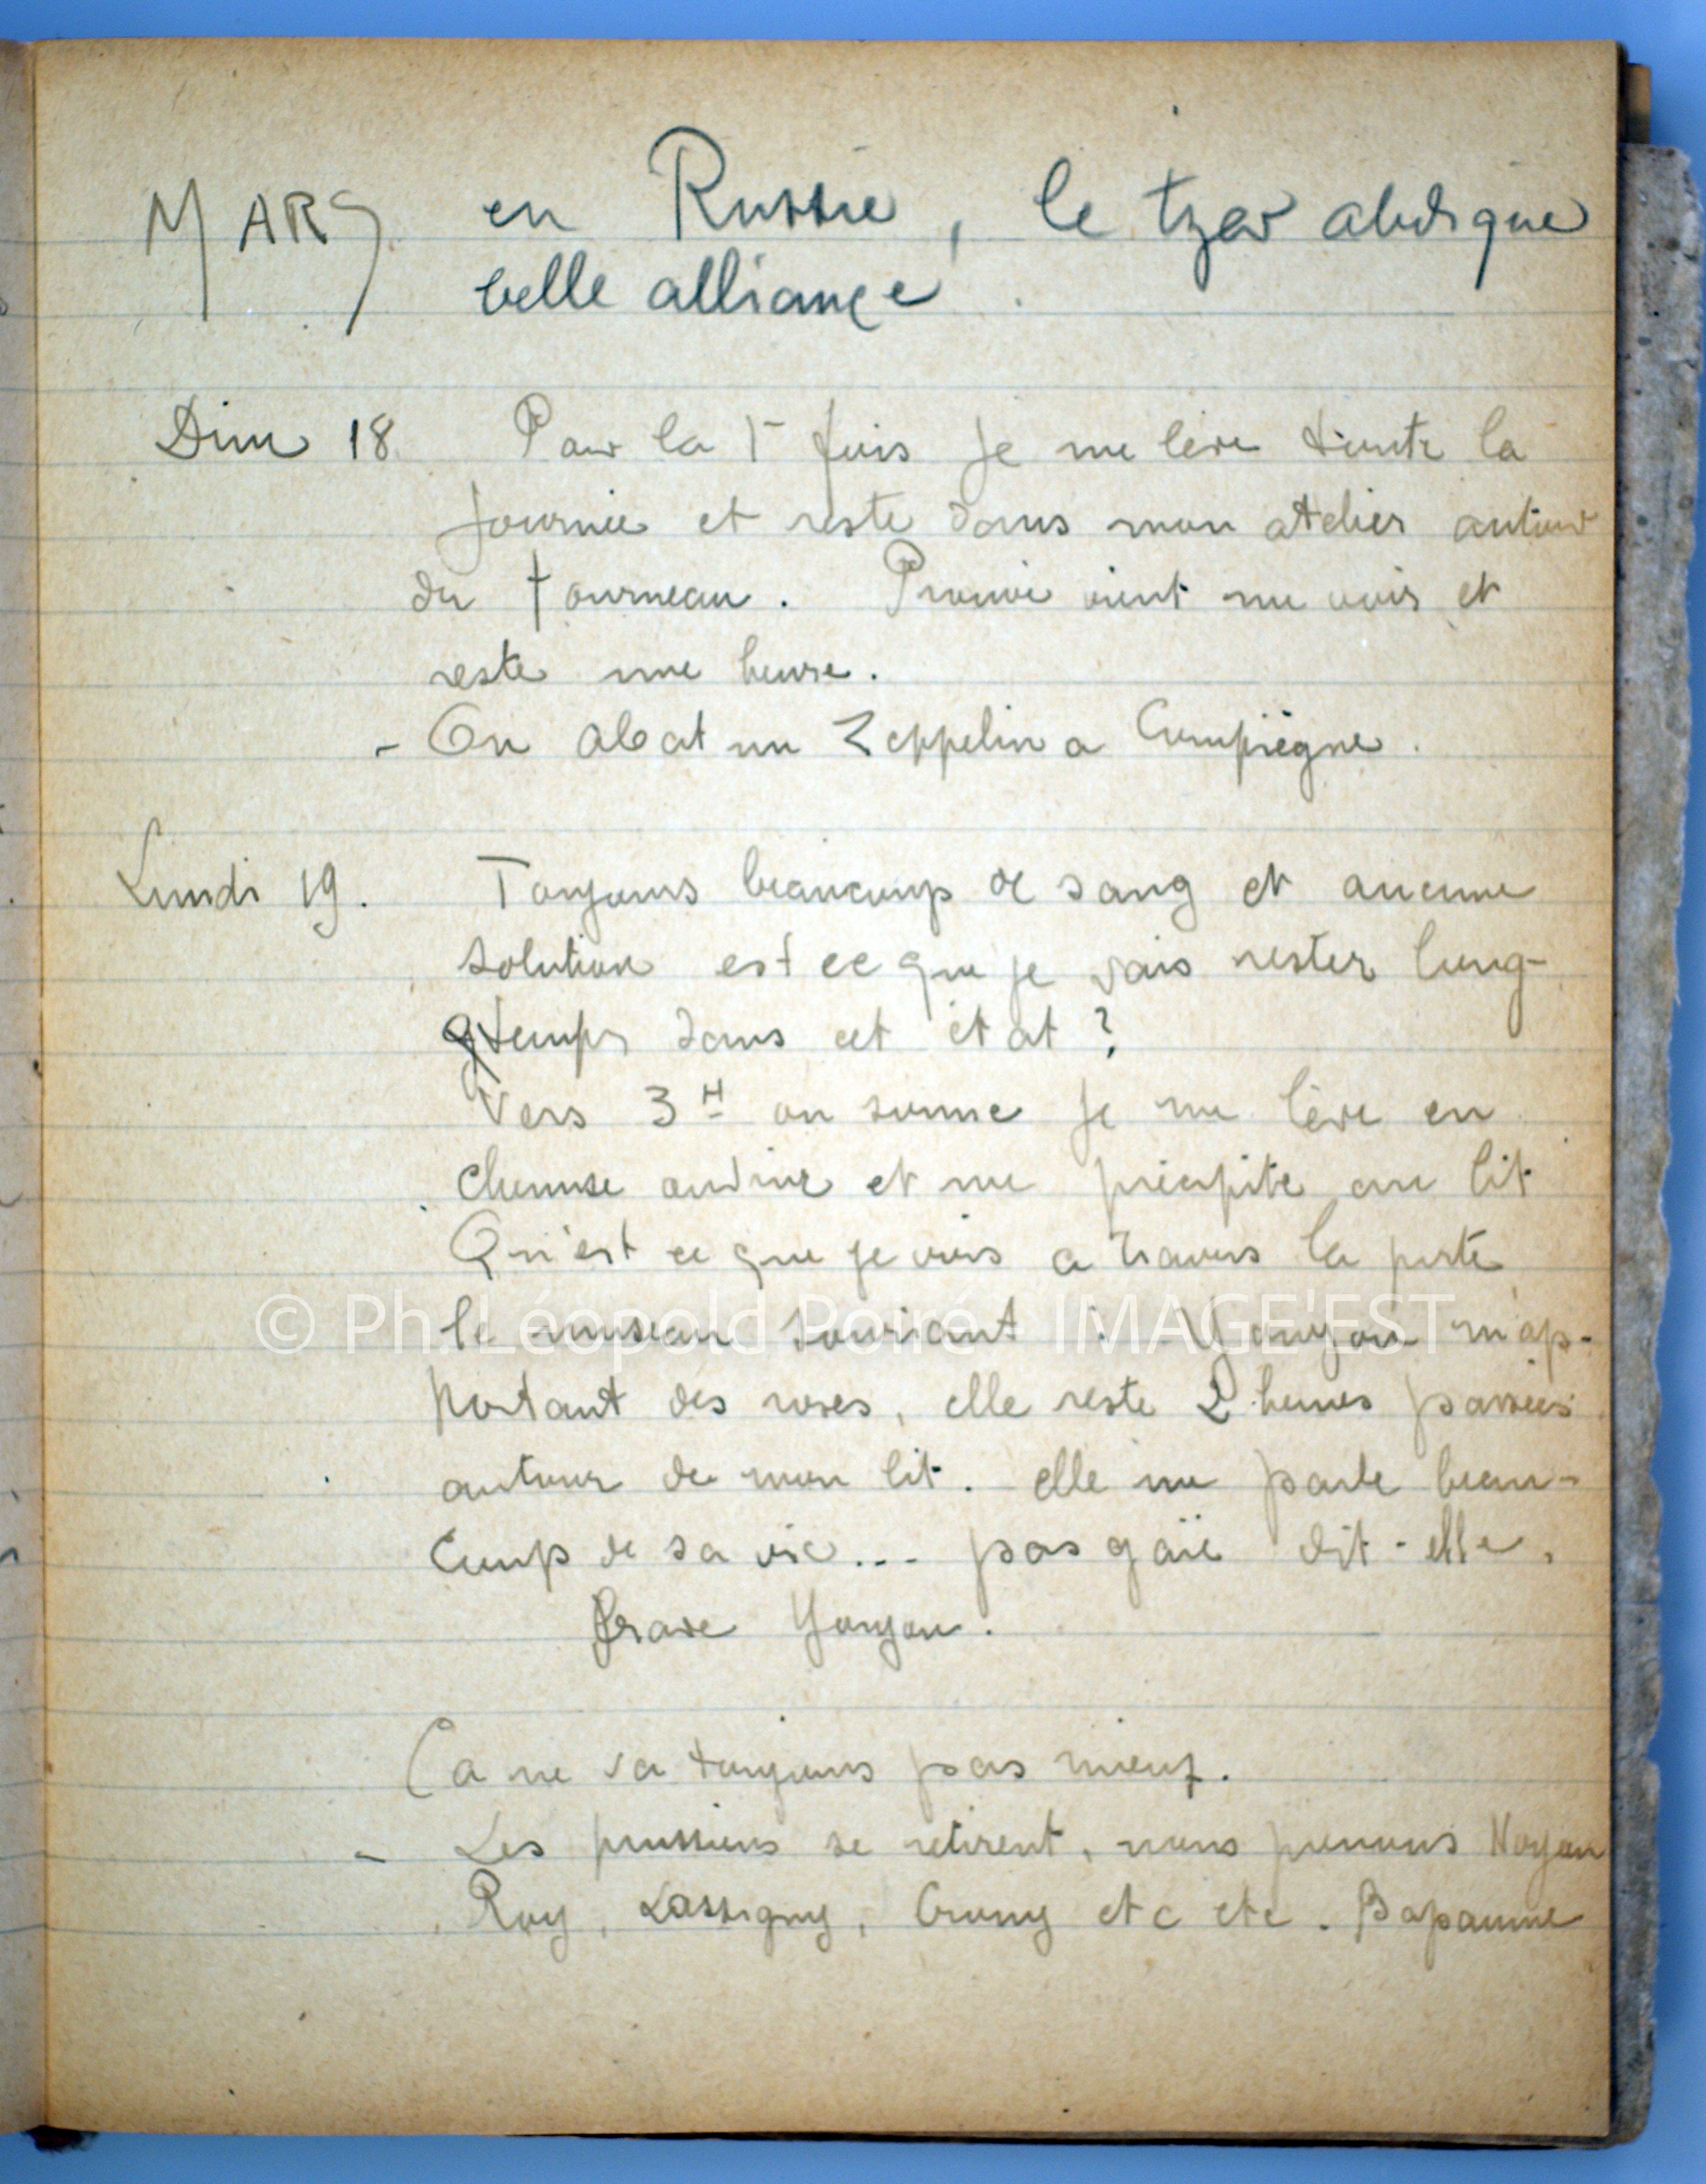 MARS en Russie, le tzar abdique
belle alliance.
Dim 18 Pour la 1r fois je me lève toute la
journée et reste dans mon atelier autour
du fourneau. vient me voir et
reste une heure.
- On abat un Zeppelin a Compiègne.
Lundi 19. Toujours beaucoup de sang et aucune
solution est ce que je vais rester long-
gtemps dans cet état ?
Vers 3H on sonne je me lève en
chemise et me précipite au lit
Qu'est ce que je vois a travers la porte
le museau souriant : Youyou m'ap-
portant des roses, elle reste 2 heures passées
autour de mon lit. elle me parle beau-
coup de sa vie... pas gaïe dit-elle.
Brave Youyou.
Ca ne va toujours pas mieux.
- Les prussiens se retirent, nous prenons Noyon
Roy, Lassigny, Crouy etc etc. Bapaume
© Ph. Léopold Poiré - IMAGE'EST